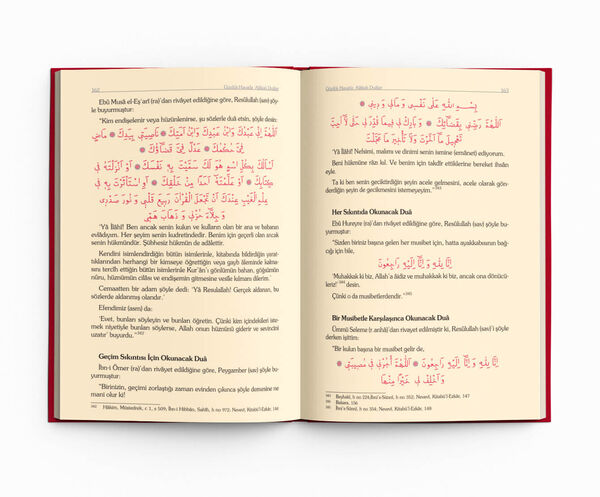 362
Günlük Hayatla Alâkalı Dualar
Ebû Musâ el-Eş'arî (ra)'dan rivâyet edildiğine göre, Resûlullah (sav) şöy-
le buyurmuştur:
"Kim endişelenir veya hüzünlenirse, şu sözlerle duâ etsin, şöyle desin:
اَللّٰهُمَّ اِنِّى عَبْدُكَ وَابْنُ عَبْدِكَ وَابْنُ اَمَتِكَ ❁ نَاصِيَتِى بِيَدِكَ ❁ مَاضٍ
فِىَّ حُكْمُكَ ❁ عَدْلٌ فِىَّ قَضَاؤُكَ ❁
اَسْاَلُكَ بِكُلِّ اسْمٍ هُوَ لَكَ سَمَّيْتَ بِهِ نَفْسَكَ ❁ اَوْ اَنْزَلْتَهُ فِى
كِتَابِكَ ❁ اَوْ عَلَّمْتَهُ اَحَدًا مِنْ خَلْقِكَ ❁ اَوِ اسْتَاْثَرْتَ بِهِ فِى
عِلْمِ الْغَيْبِ عِنْدَكَ اَنْ تَجْعَلَ الْقُرْاٰنَ رَبِيعَ قَلْبِى وَ نُورَ صَدْرِى
وَ جِلَاءَ حُزْنِى وَ ذَهَابَ هَمِّى
'Yâ İlâhî! Ben ancak senin kulun ve kulların olan bir ana ve babanın
evlâdıyım. Her şeyim senin kudretindedir. Benim için geçerli olan ancak
senin hükmündür. Şüphesiz hükmün de adâlettir.
Kendini isimlendirdiğin bütün isimlerinle, kitabında bildirdiğin yarat-
tıklarından herhangi bir kimseye öğrettiğin veya gayb âleminde kalma-
sını tercih ettiğin bütün isimlerinle Kur'ân'ı gönlümün baharı, göğsümün
nûru, hüzmümün cilâsı ve endişemin gitmesine vesile kılmanı dilerim.'
Cemaatten bir adam şöyle dedi: 'Yâ Resulallah! Gerçek aldanan, bu
sözlerde aldanmış olandır.'
Efendimiz (asm) da:
'Evet, bunları söyleyin ve bunları öğretin. Çünkü kim içindekileri iste-
mek niyetiyle bunları söylerse, Allah onun hüznünü giderir ve sevincini
uzatır' buyurdu."³⁴²
Geçim Sıkıntısı İçin Okunacak Duâ
İbn-i Ömer (ra)'dan rivâyet edildiğine göre, Peygamber (sav) şöyle bu-
yurmuştur:
"Birinizin, geçimi zorlaştığı zaman evinden çıkınca şöyle demesine ne
mani olur ki!
342 Hâkim, Müstedrek, c 1, s 509, İbn-i Hibbân, Sahîh, h no 972; Nevevî, Kitâbü'l-Ezkâr, 146
Günlük Hayatla Alâkalı Dualar
363
بِسْمِ اللّٰهِ عَلٰى نَفْسِى وَ مَالِى وَ دِينِى ❁
اَللّٰهُمَّ رَضِّنِى بِقَضَائِكَ ❁ وَ بَارِكْ لِى فِيمَا قُدِّرَ لِى حَتّٰى لَا اُحِبَّ
تَعْجِيلَ مَا اَخَّرْتَ وَلَا تَاْخِيرَ مَا عَجَّلْتَ
'Yâ İlâhî! Nefsimi, malımı ve dinimi senin ismine (emânet) ediyorum.
Beni hükmüne râzı kıl. Ve benim için takdîr ettiklerine bereket ihsân
eyle.
Ta ki ben senin geciktirdiğin şeyin acele gelmesini, acele olarak gön-
derdiğin şeyin de gecikmesini istemeyeyim.'"³⁴³
Her Sıkıntıda Okunacak Duâ
Ebû Hureyre (ra)'dan rivâyet edildiğine göre, Resûlullah (sav) şöyle bu-
yurmuştur:
"Sizden biriniz başına gelen her musibet için, hatta ayakkabısının bağ-
cığı için bile,
اِنَّا لِلّٰهِ وَ اِنَّا اِلَيْهِ رَاجِعُونَ
'Muhakkak ki biz, Allah'a âidiz ve muhakkak ki biz, ancak ona dönücü-
leriz!'³⁴⁴ desin.
Çünkü o da musibetlerdendir."³⁴⁵
Bir Musibetle Karşılaşınca Okunacak Duâ
Ümmü Seleme (r.anhâ)'dan rivayet edilmiştir ki, Resûlullah (sav)'i şöyle
derken işittim:
"Bir kulun başına bir musibet gelir de,
اِنَّا لِلّٰهِ وَ اِنَّا اِلَيْهِ رَاجِعُونَ ❁ اَللّٰهُمَّ اْجُرْنِى فِى مُصِيبَتِى ❁
وَ اَخْلِفْ لِى خَيْرًا مِنْهَا
343 Beyhakî, h no 224;İbnü's-Sünnî, h no 352; Nevevî, Kitâbü'l-Ezkâr, 147
344 Bakara, 156
345 İbnü's-Sünnî, h no 354; Nevevî, Kitâbü'l-Ezkâr, 148